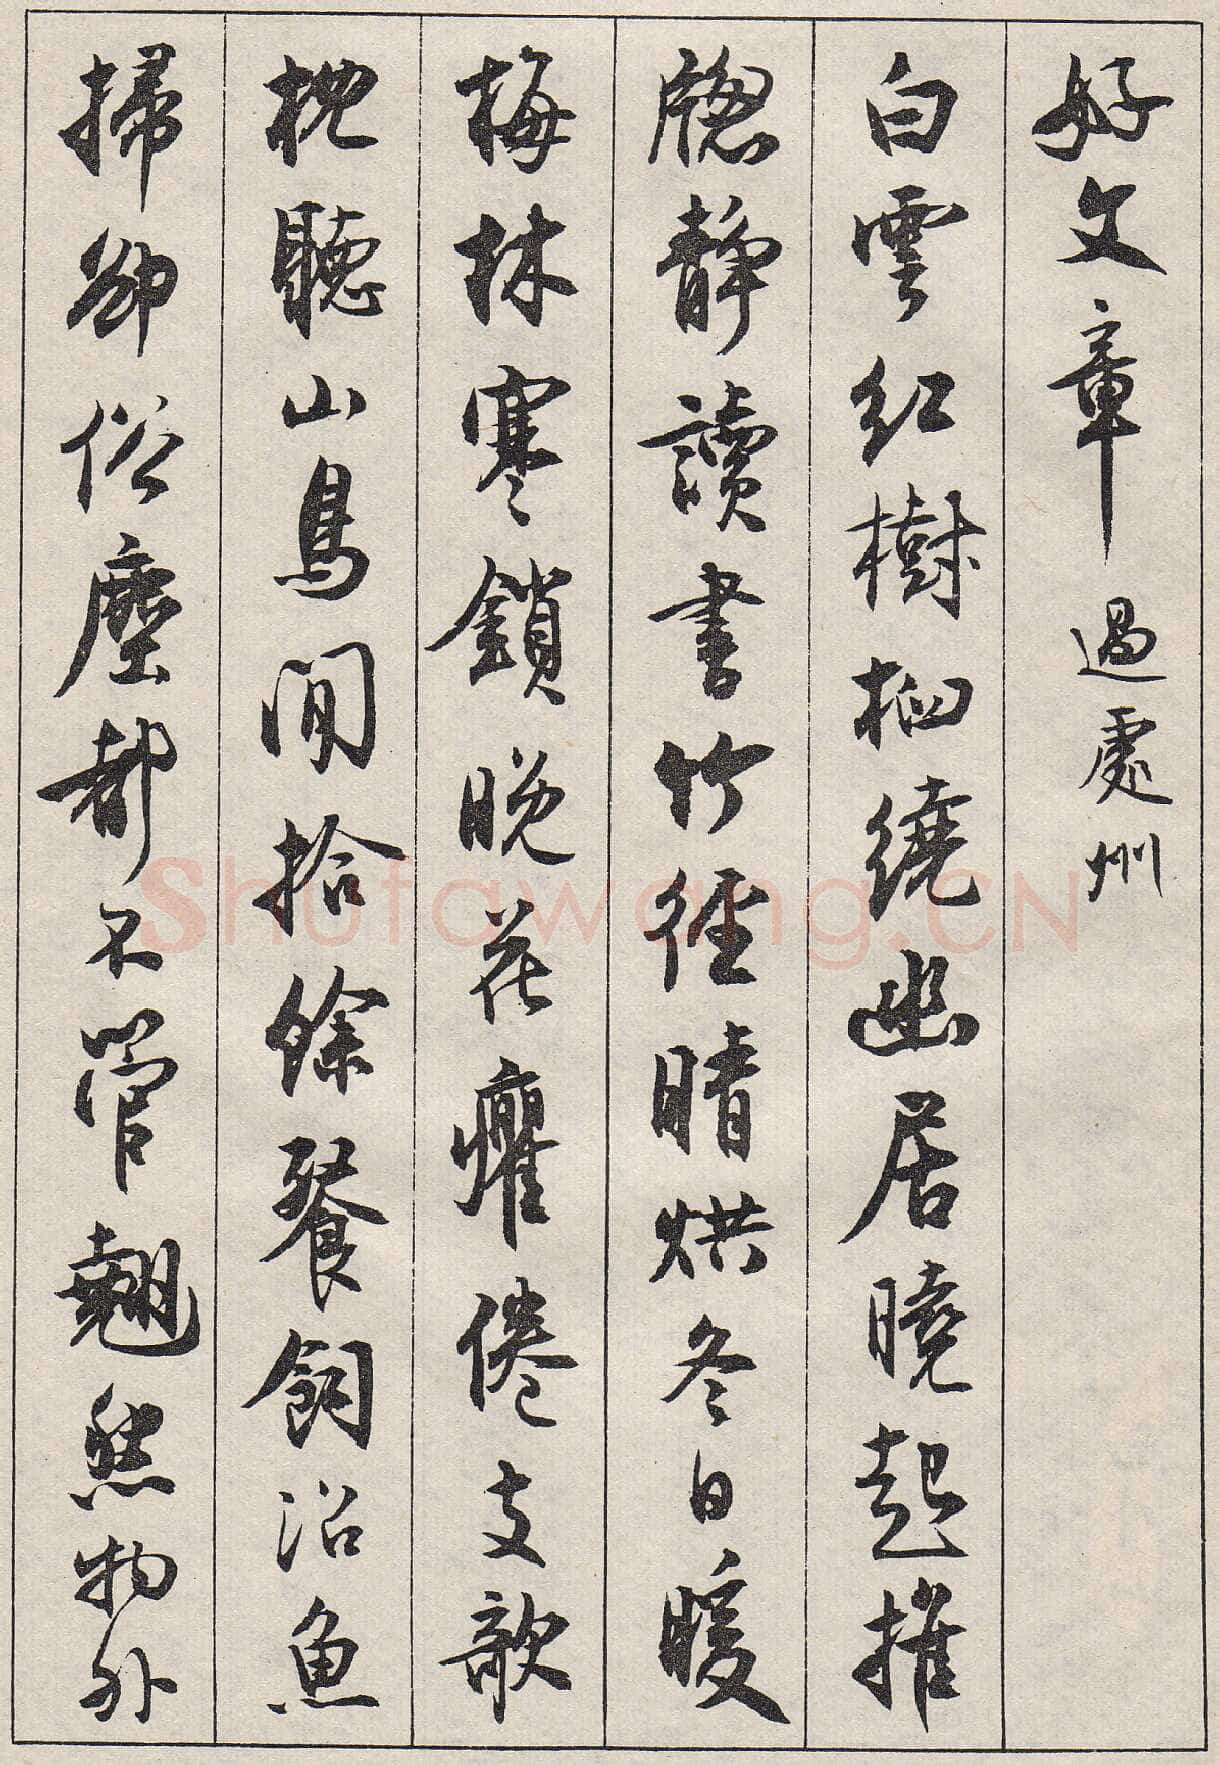 好文章 過處州
白雲紅樹栖繞幽居曉起推
牕靜讀書竹徑晴烘冬日暖
梅林寒鎖晚花癯倦支欹
枕聽山鳥閒拾餘餐飼沼魚
掃卻俗塵都不管翹然物外
Shufawang.CN